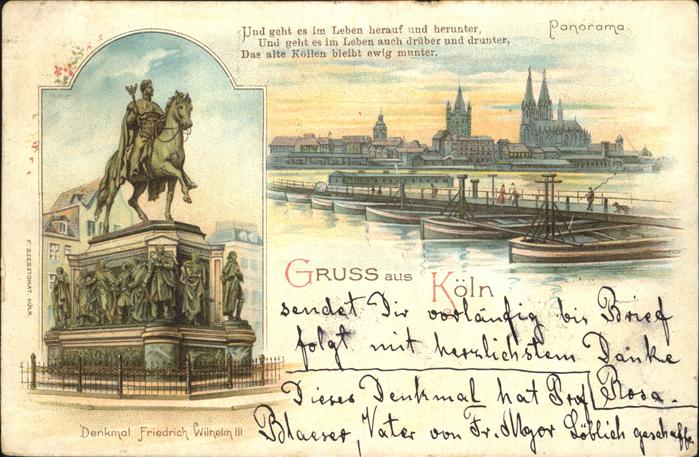 Und geht es im Leben herauf und herunter,
Und geht es im Leben auch drüber und drunter,
Das alte Köllen bleibt ewig munter.
Panorama.
GRUSS aus Köln
sendet Dir vorläufig bis Brief
folgt mit herzlichstem Danke
Rosa.
Dieses Denkmal hat Prof
Blaeser, Vater von Fr. Major Löblich geschaffe
Denkmal Friedrich Wilhelm III
KÖLN.